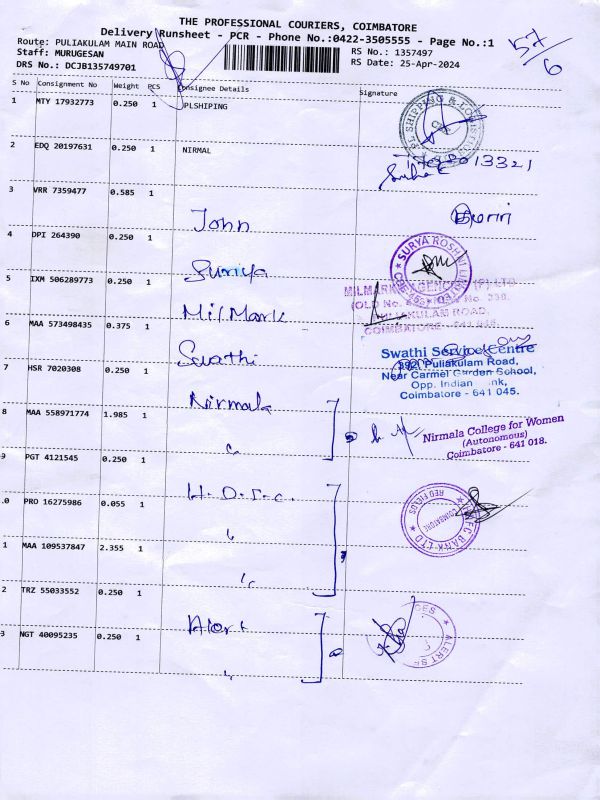 THE PROFESSIONAL COURIERS, COIMBATORE
Delivery Runsheet - PCR - Phone No.:0422-3505555 - Page No.:1
Route: PULIAKULAM MAIN ROAD
RS No.: 1357497
57/6
Staff: MURUGESAN
RS Date: 25-Apr-2024
DRS No.: DCJB135749701
S No Consignment No Weight PCS Consignee Details Signature
1 MTY 17932773 0.250 1 PLSHIPING
PL SHIPPING &
2 EDQ 20197631 0.250 1 NIRMAL
3 VRR 7359477 0.585 1
John
4 DPI 264390 0.250 1
SURYA ROSHNI
Suriya
5 IXM 506289773 0.250 1
MILMARK (P) LTD
PULIAKULAM ROAD,
COIMBATORE - 641 045.
MilMark
6 MAA 573498435 0.375 1
Swathi
Swathi Service Centre
392, Puliakulam Road,
Near Carmel Garden School,
Opp. Indian nk,
Coimbatore - 641 045.
7 HSR 7020308 0.250 1
Nirmala
8 MAA 558971774 1.985 1
Nirmala College for Women
(Autonomous)
Coimbatore - 641 018.
9 PGT 4121545 0.250 1
H.D.F.C.
0 PRO 16275986 0.055 1
RED FIELDS
COIMBATORE
BANK LTD
1 MAA 109537847 2.355 1
2 TRZ 55033552 0.250 1
Alert
ALERT
3 NGT 40095235 0.250 1